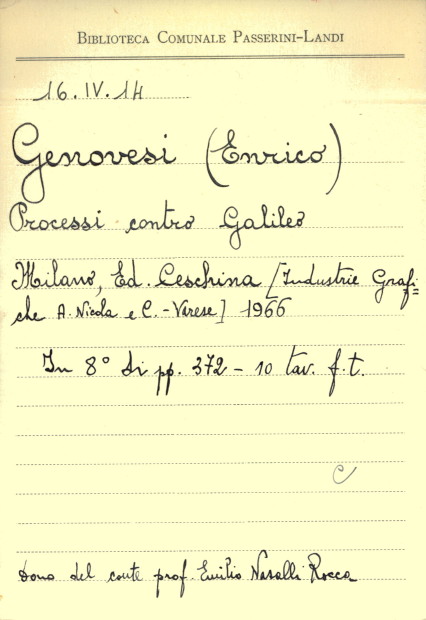 BIBLIOTECA COMUNALE PASSERINI-LANDI
16.IV.14
Genovesi (Enrico)
Processi contro Galileo
Milano, Ed. Ceschina [Industrie Grafi=
che A. Nicola e C. - Varese] 1966
In 8° di pp. 372 - 10 tav. f. t.
C
Dono del conte prof. Emilio Nasalli Rocca